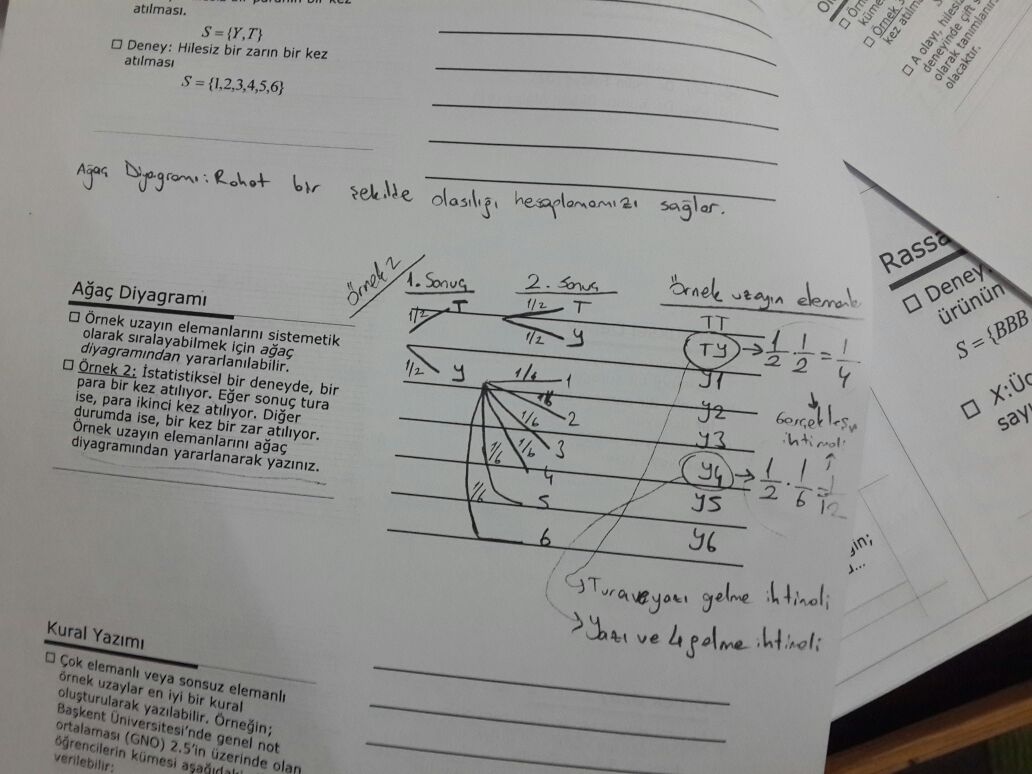 atılması.
S = {Y,T}
□ Deney: Hilesiz bir zarın bir kez
atılması
S = {1,2,3,4,5,6}
Ağaç Diyagramı: Rahat bir şekilde olasılığı hesaplamamızı sağlar.
Ağaç Diyagramı
□ Örnek uzayın elemanlarını sistemetik
olarak sıralayabilmek için ağaç
diyagramından yararlanılabilir.
□ Örnek 2: İstatistiksel bir deneyde, bir
para bir kez atılıyor. Eğer sonuç tura
ise, para ikinci kez atılıyor. Diğer
durumda ise, bir kez bir zar atılıyor.
Örnek uzayın elemanlarını ağaç
diyagramından yararlanarak yazınız.
Örnek 2
1. Sonuç 2. Sonuç Örnek uzayın
1/2 T 1/2 T TT
1/2 Y TY → 1/2 . 1/2 = 1/4
1/2 Y 1/6 1 Y1
1/6 2 Y2
1/6 3 Y3
ihtimali
1/6 4 Y4 → 1/2 . 1/6 = 1/12
1/6 5 Y5
6 Y6
Tura ve yazı gelme ihtimali
Yazı ve 4 gelme ihtimali
Kural Yazımı
□ Çok elemanlı veya sonsuz elemanlı
örnek uzaylar en iyi bir kural
oluşturularak yazılabilir. Örneğin;
Başkent Üniversitesi'nde genel not
ortalaması (GNO) 2.5'in üzerinde olan
öğrencilerin kümesi aşağıdaki
verilebilir:
□ A olayı, hilesiz
deneyinde çift s
olarak tanımlanırs
olacaktır.
Rassa
□ Deney:
ürünün
S = {BBB
□ X:Üç
sayı